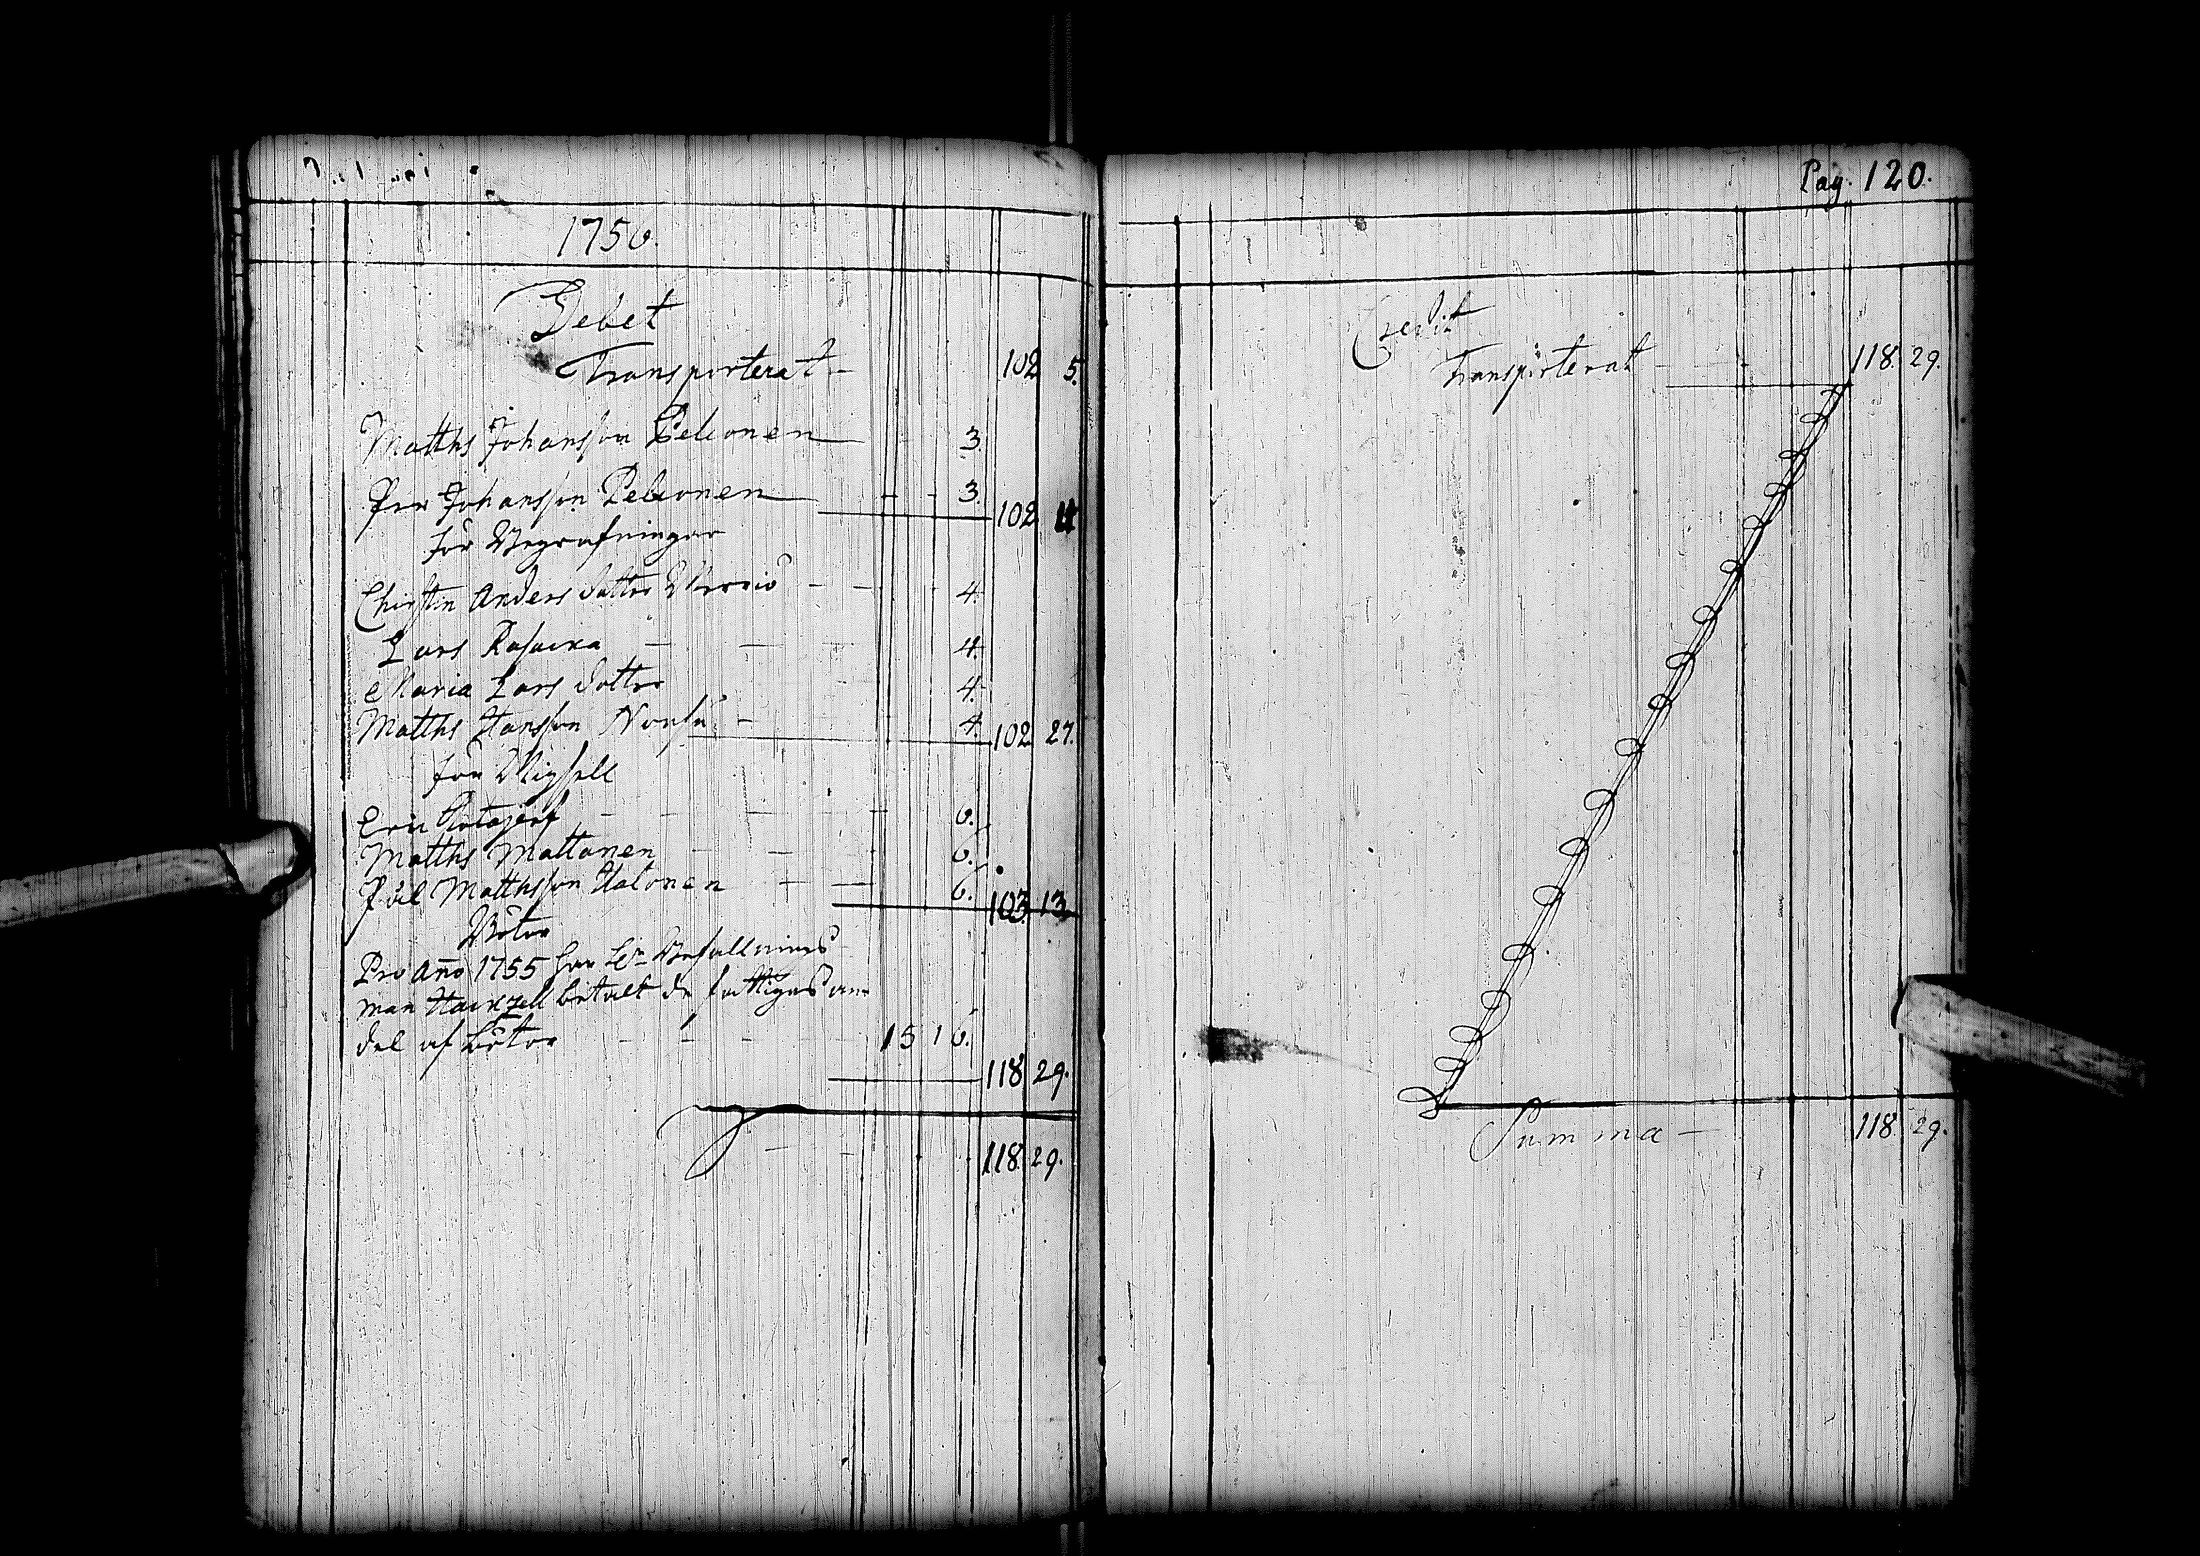 1756.
Debet
Transporterat 102 5.
Matths Johansson Pelconen 3.
Per Johansson Pelconen 3. 102 11
för Begrafningar
Chirstin Anders dotter 4.
Lars 4.
Maria Lars dotter 4.
Matths Hansson 4. 102 27.
för Vigsell
Eric 6.
Matths Mattanen 6.
Pål Matthsson Halonen 6. 103 13.
Böter
Pro Año 1755 har Hr Befallnings
man Hackzell betalt de fattigas an
del af böter 15 16.
118 29.
118. 29.
Pag. 120.
Credit
Transporterat 118. 29.
Summa 118 29.